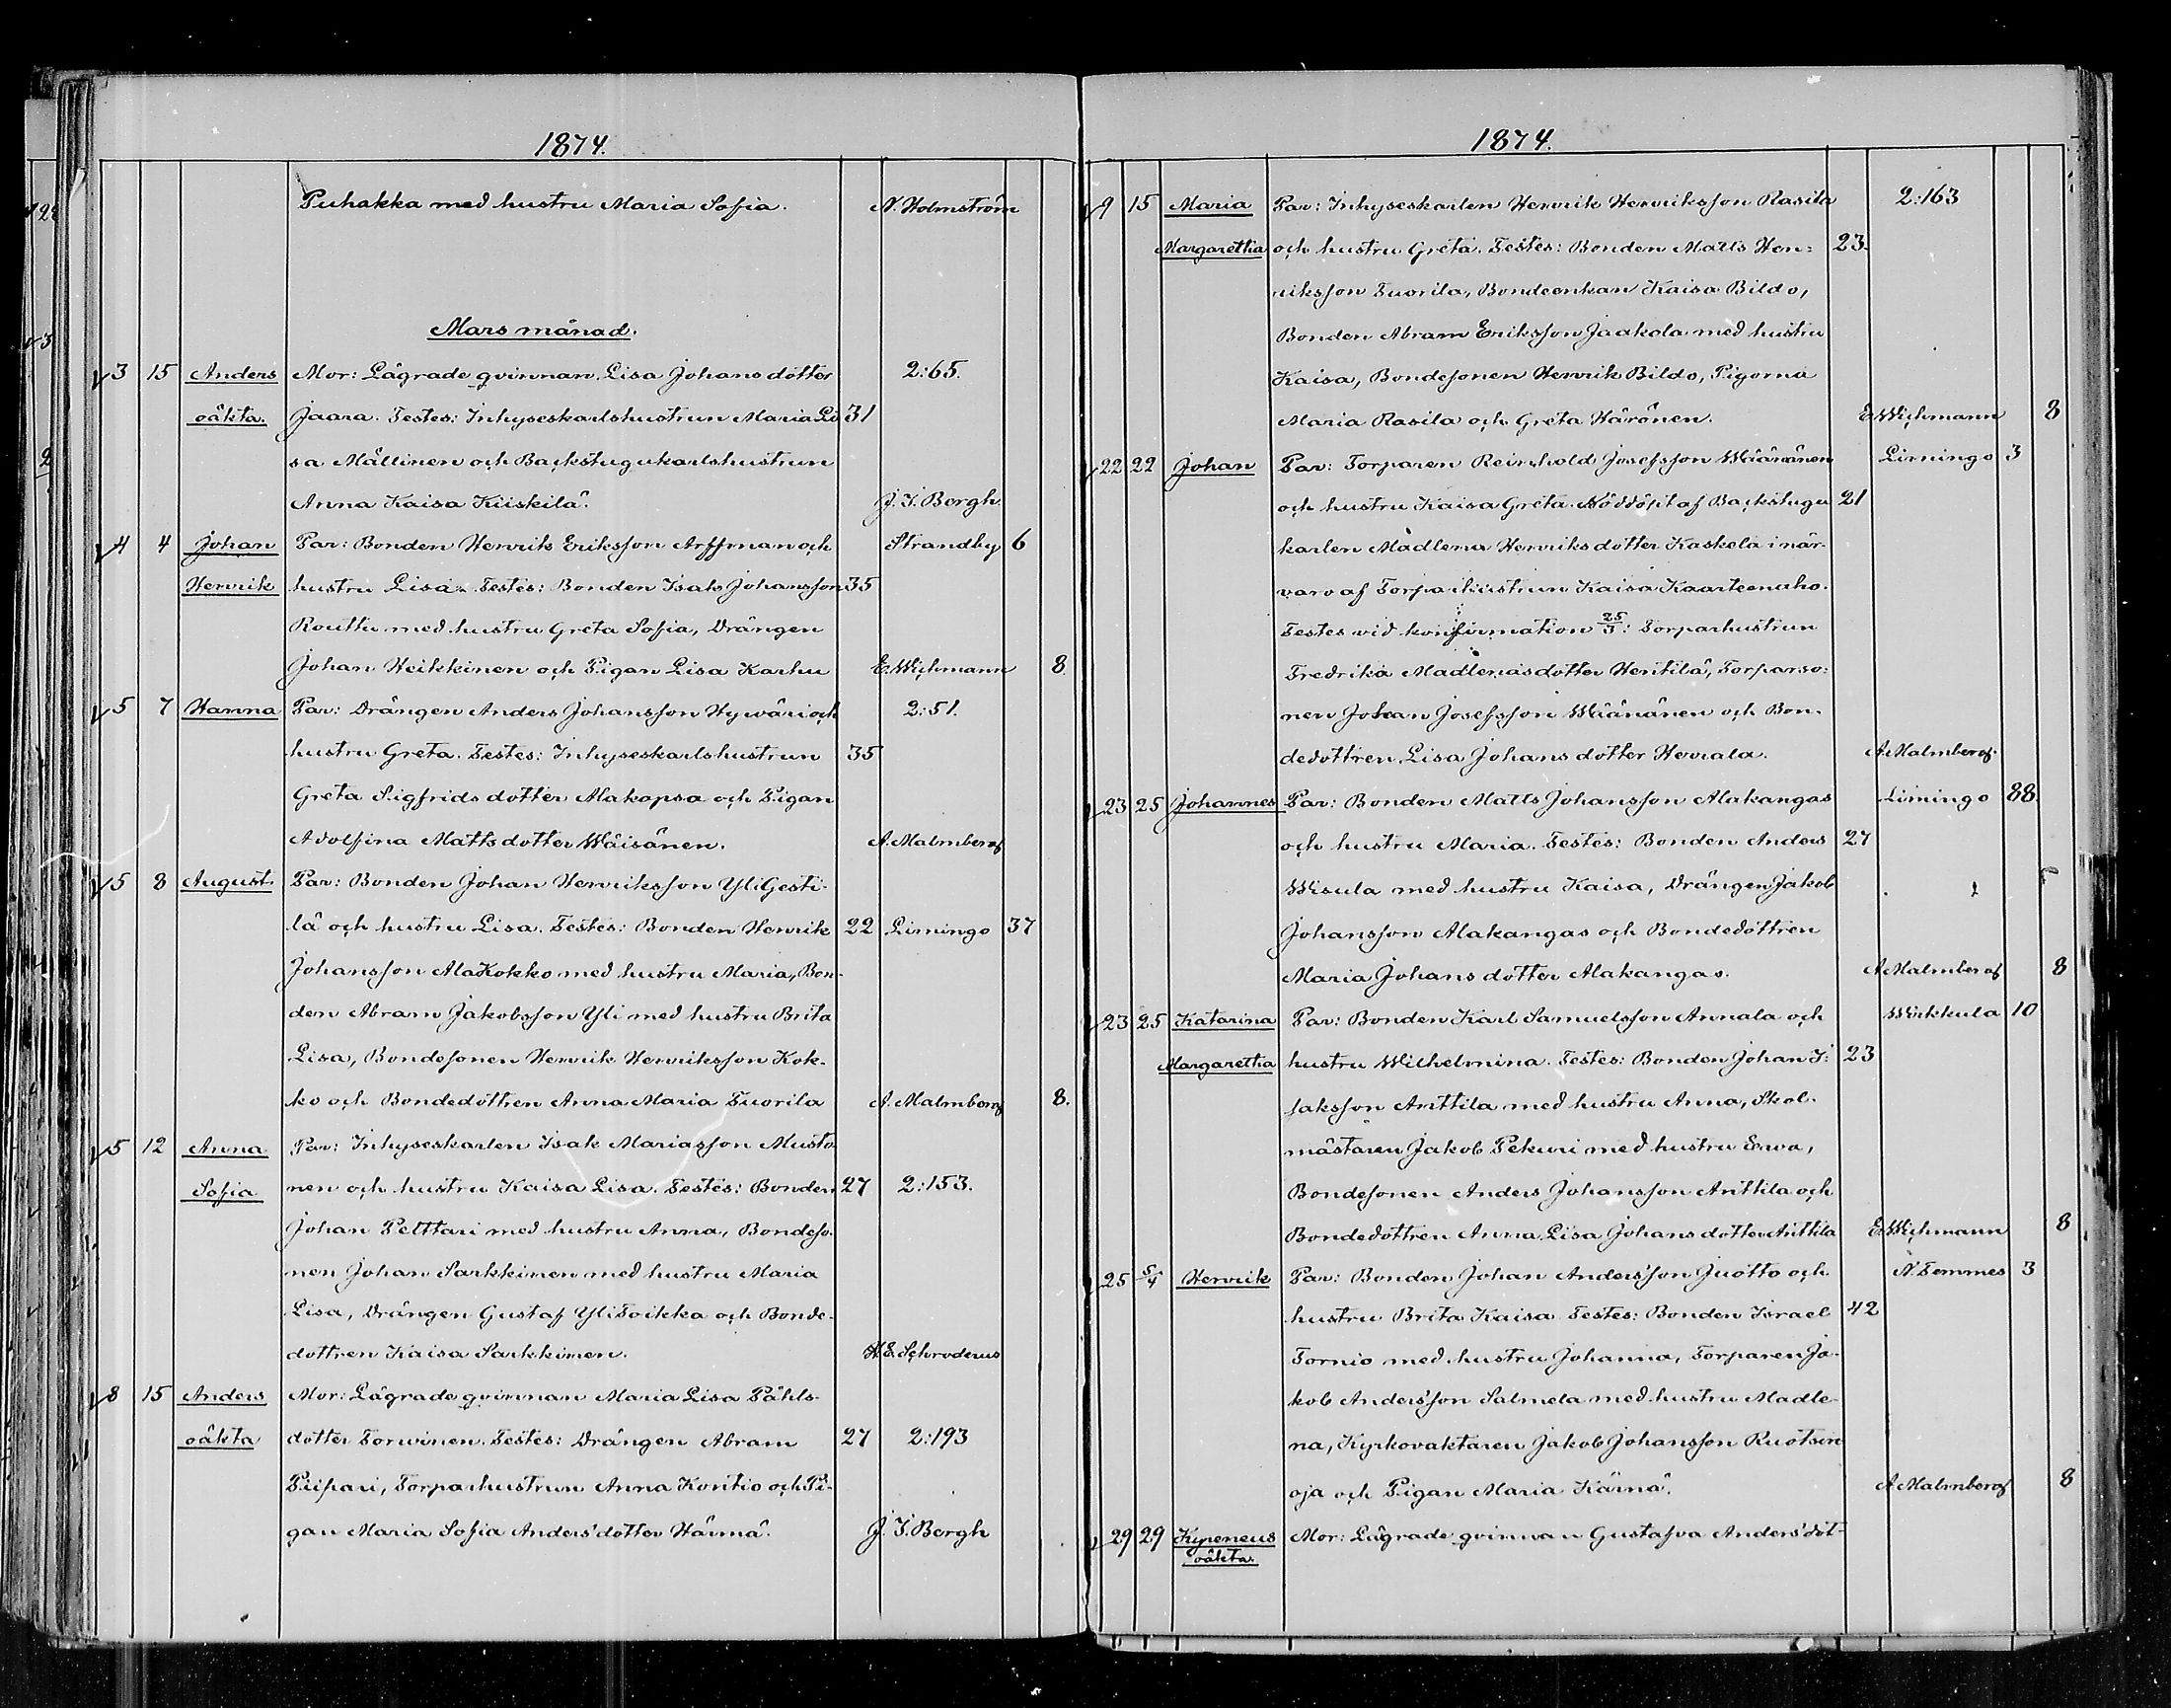 1874.
Puhakka med hustru Maria Sofia. N. Holmström
Mars månad.
3 15 Anders Mor: Lägrade qvinnan Lisa Johansdotter 2:65.
oäkta. Jaara. Testes: Inhyseskarlshustrun Maria Li 31
sa Mällinen och Backstugukarlshustrun
Anna Kaisa Kiiskilä. J. F. Bergh.
4 4 Johan Par: Bonden Henrik Eriksson Arffman och Strandby 6
Henrik hustru Lisa. Testes: Bonden Isak Johansson 35
Routtu med hustru Greta Sofia, Drängen
Johan Heikkinen och Pigan Lisa Karhu E. Wichmann 8.
5 7 Hanna Par: Drängen Anders Johansson Hywäri och 2:51.
hustru Greta. Testes: Inhyseskarlshustrun 35
Greta Sigfridsdotter Alakopsa och Pigan
Adolfina Mattsdotter Wäisänen. A. Malmberg
5 8 August Par: Bonden Johan Henriksson YliGesti-
lä och hustru Lisa. Testes: Bonden Henrik 22 Limingo 37
Johansson AlaKokko med hustru Maria, Bon-
den Abram Jakobsson Yli med hustru Brita
Lisa, Bondesonen Henrik Henriksson Kok-
ko och Bondedottren Anna Maria Tuorila A. Malmberg 8.
5 12 Anna Par: Inhyseskarlen Isak Mariasson Musto-
Sofia nen och hustru Kaisa Lisa. Testes: Bonden 27 2:153.
Johan Pelttari med hustru Anna, Bondeso-
nen Johan Sarkkinen med hustru Maria
Lisa, Drängen Gustaf YliToikka och Bonde-
dottren Kaisa Sarkkinen. H. E. Schroderus
8 15 Anders Mor: Lägrade qvinnan Maria Lisa Påhls-
oäkta dotter Torvinen. Testes: Drängen Abram 27 2:193
Piipari, Torparhustrun Anna Kontio och Pi-
gan Maria Sofia Anders'dotter Härmä. J. F. Bergh
1874.
9 15 Maria Par: Inhyseskarlen Henrik Henriksson Rasila 2:163
Margaretha och hustru Greta. Testes: Bonden Matts Hen- 23.
riksson Tuorila, Bondeenkan Kaisa Bildo,
Bonden Abram Eriksson Jaakola med hustru
Kaisa, Bondesonen Henrik Bildo, Pigorna
Maria Rasila och Greta Härönen. E. Wichmann 8
22 22 Johan Par: Torparen Reinhold Josefsson Wäänänen Limingo 3
och hustru Kaisa Greta. Nöddöpt af Backstugu 21
karlen Madlena Henriksdotter Kaskela i när-
varo af Torparhustrun Kaisa Kaarteenaho.
Testes vid konfirmation 25/3: Torparhustrun
Fredrika Madlenasdotter Hentilä, Torparso-
nen Johan Josefsson Wäänänen och Bon-
dedottren Lisa Johansdotter Herrala. A. Malmberg.
23 25 Johannes Par: Bonden Matts Johansson Alakangas Limingo 88.
och hustru Maria. Testes: Bonden Anders 27
Wisula med hustru Kaisa, Drängen Jakob
Johansson Alakangas och Bondedottren
Maria Johansdotter Alakangas. A. Malmberg 8
23 25 Katarina Par: Bonden Karl Samuelsson Annala och Wirkkula 10
Margaretha hustru Wilhelmina. Testes: Bonden Johan I- 23
saksson Anttila med hustru Anna, Skol-
mästaren Jakob Pekuri med hustru Eeva,
Bondesonen Anders Johansson Anttila och
Bondedottren Anna Lisa Johansdotter Anttila E. Wichmann 8
25 5/4 Henrik Par: Bonden Johan Anders'son Juotto och N. Temmes 3
hustru Brita Kaisa. Testes: Bonden Israel 42
Tornio med hustru Johanna, Torparen Ja-
kob Anders'son Salmela med hustru Madle-
na, Kyrkovaktaren Jakob Johansson Ruotsin
oja och Pigan Maria Kärnä. A. Malmberg 8
29 29 Kyreneus Mor: Lägrade qvinnan Gustafva Anders'dot-
oäkta.